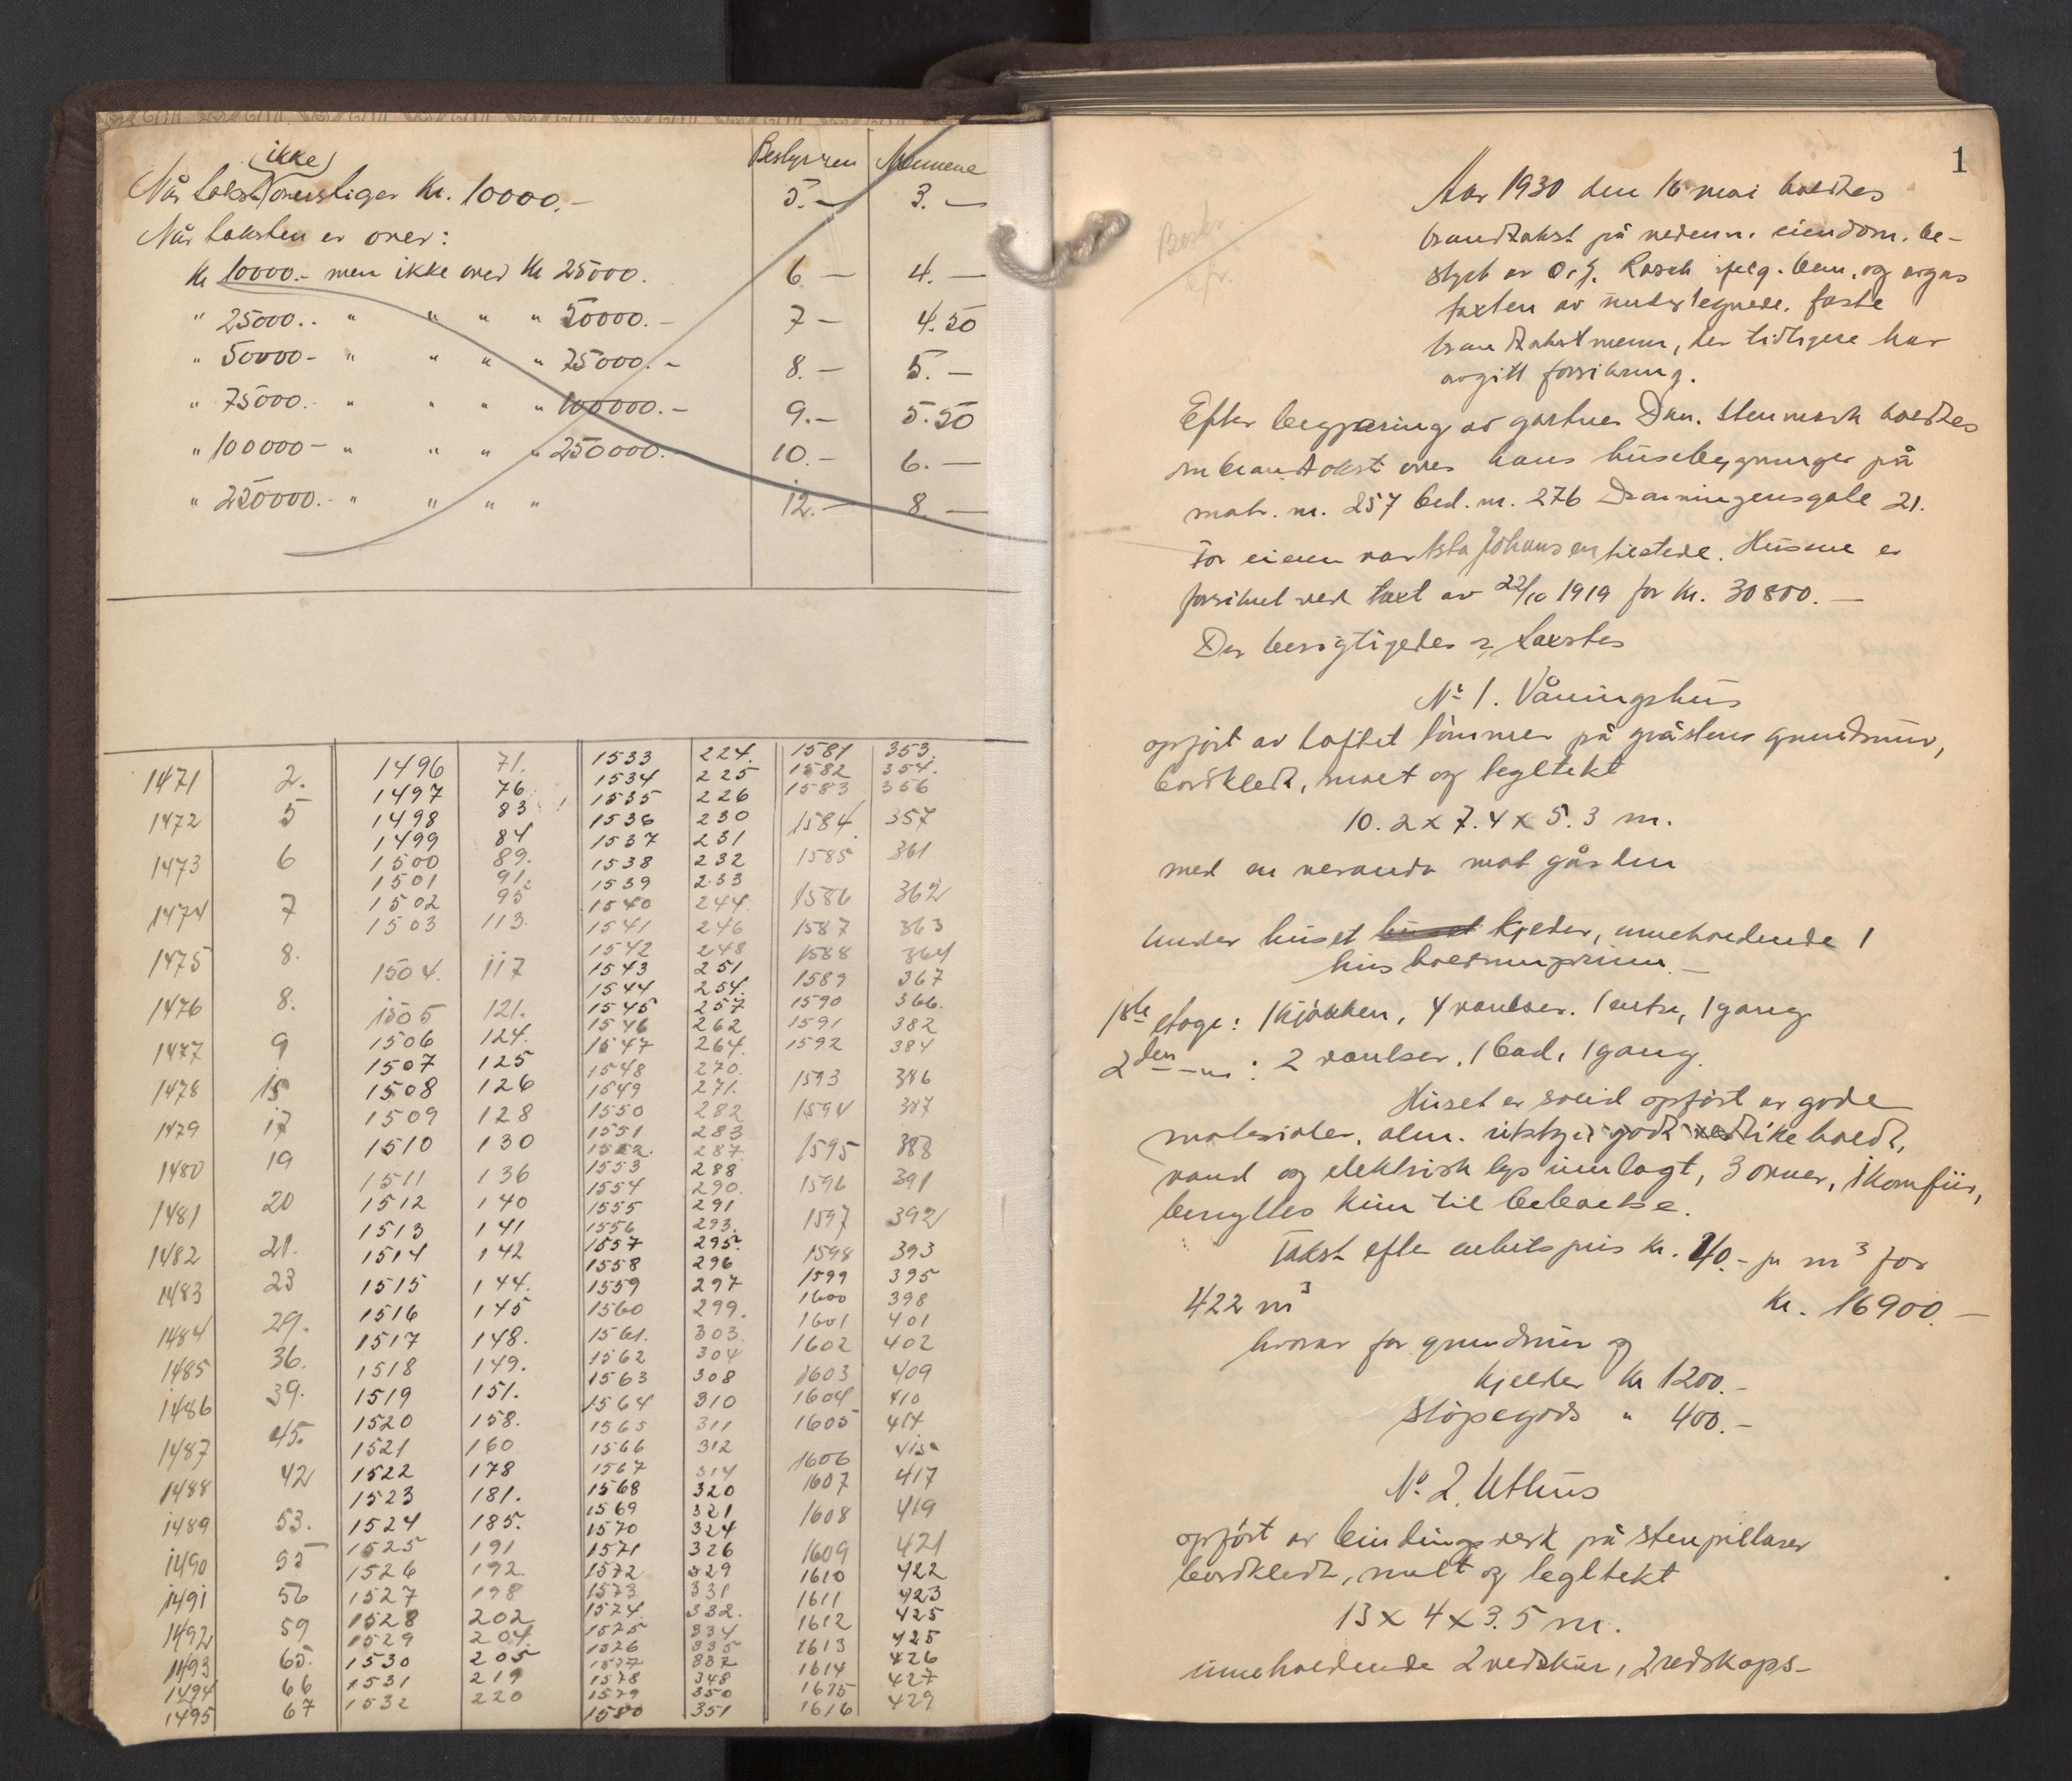 Bestyreren Mennene
ikke
Når taksten overstiger Kr. 10000.- 5.- 3.-
Når taksten er over:
Kr 10000.- men ikke over Kr 25000. 6 - 4.-
" 25000.. " " " " 50000.- 7 - 4.50
" 50000- " " " " 75000.- 8.- 5.-
" 75000.- " " " " 100000.- 9.- 5.50
" 100000- " " " " 250000.- 10.- 6.-
" 250000.- " " " " 12.- 8 -
1471 2.
1472 5
1473 6
1474 7
1475 8.
1476 8.
1477 9
1478 15
1479 17
1480 19
1481 20
1482 21.
1483 23
1484 29.
1485 36.
1486 39.
1487 45.
1488 42
1489 53.
1490 55
1491 56
1492 59
1493 65.
1494 66
1495 67
1496 71.
1497 76
1498 83
1499 84
1500 89.
1501 91.
1502 95
1503 113.
1504. 117
1505 121.
1506 124.
1507 125
1508 126
1509 128
1510 130
1511 136
1512 140
1513 141
1514 142
1515 144.
1516 145
1517 148.
1518 149.
1519 151.
1520 158.
1521 160
1522 178
1523 181.
1524 185.
1525 191
1526 192.
1527 198
1528 202
1529 204.
1530 205
1531 219
1532 220
1533 224.
1534 225
1535 226
1536 230
1537 231
1538 232
1539 233
1540 244.
1541 246
1542 248
1543 251
1544 254.
1545 257
1546 262
1547 264.
1548 270.
1549 271.
1550 282
1551 283
1552. 287.
1553 288
1554 290.
1555 291
1556 293.
1557 295.
1558 296
1559 297
1560 299.
1561. 303.
1562 304
1563 308
1564 310
1565 311
1566 312
1567 314
1568 320
1569 321
1570 324
1571 326
1572 329
1573 331
1574. 332.
1575 334
1576 335
1577 337
1578 348
1579 350
1580 351
1581 353.
1582 354.
1583 356
1584. 357
1585 361
1586 362
1587 363
1588 364
1589 367
1590 366.
1591 382
1592 384
1593 386
1594 387
1595 388
1596 391
1597 392
1598 393
1599 395
1600 398
1601 401
1602 402
1603 409
1604 410
1605 414.
1606
1607 417
1608 419
1609 421
1610 422
1611 423
1612 425
1613 425
1614 426
1615 427
1616 429
1
Beskr.
Aar 1930 den 16 mai holdtes
brandtakst på nedenn. eiendom. be-
styrt av O. J. Rasch ifølg. bem. og avgav
taxten av undertegnede. faste
brandtakstmenn, der tidligere har
avgitt forsikring.
Efter begjæring av gartner Dan. Stenmark holdtes
ombrandtakst over hans husebygninger på
matr. nr. 257 bed. nr. 276 Dronningensgate 21.
For eieren var Asta Johansen tilstede. Husene er
forsikret ved taxt av 22/10 1919 for Kr. 30800.-
Der besigtigedes & taxertes
Nr 1. Våningshus
opført av laftet tømmer på gråstens grundmur,
bordkledt, malt og tegltekt
10.2 x 7.4 x 5.3 m.
med en veranda mot gården
Under huset huset kjelder, inneholdende 1
husholdningsrum.-
1ste etage: 1 kjøkken, 4 værelser. 1 entre, 1 gang
2den -"- : 2 værelser, 1 bad, 1 gang.
Huset er solid opført av gode
materialer, alm. utstyr godt vedlikeholdt,
vand og elektrisk lys innlagt, 3 ovner, 1 komfur,
benyttes kun til beboelse.
Takst efter enhetspris kr. 40.- pr m3 for
422 m3 Kr. 16900.-
hvorav for grundmur og
kjelder Kr 1200.-
støpegods " 400.-
No 2. Uthus
opført av bindingsverk på stenpillarer
bordkledt, malt og tegltekt
13 x 4 x 3.5 m.
inneholdende 2 vedskur, 2 redskaps-